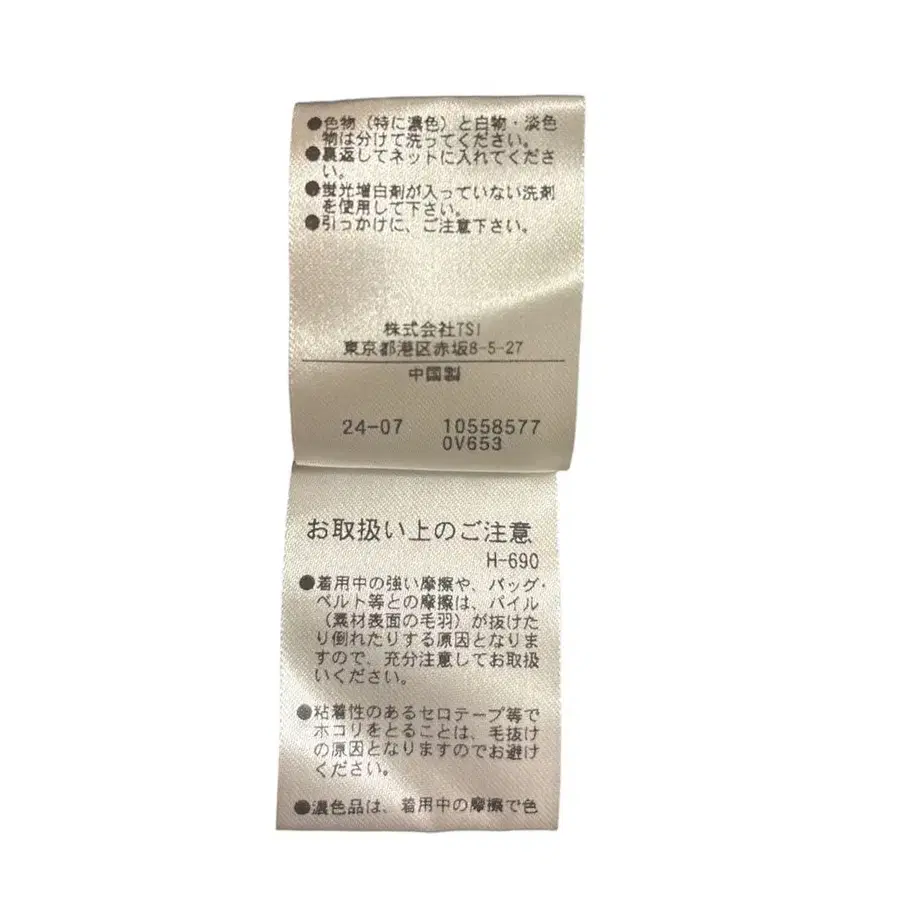 ●色物（特に濃色）と白物・淡色
物は分けて洗ってください。
●裏返してネットに入れてくださ
い。
●蛍光増白剤が入っていない洗剤
を使用して下さい。
●引っかけに、ご注意下さい。
株式会社TSI
東京都港区赤坂8-5-27
中国製
24-07 10558577
0V653
お取扱い上のご注意
H-690
●着用中の強い摩擦や、バッグ・
ベルト等との摩擦は、パイル
（素材表面の毛羽）が抜けた
り倒れたりする原因となりま
すので、充分注意してお取扱
いください。
●粘着性のあるセロテープ等で
ホコリをとることは、毛抜け
の原因となりますのでお避け
ください。
●濃色品は、着用中の摩擦で色